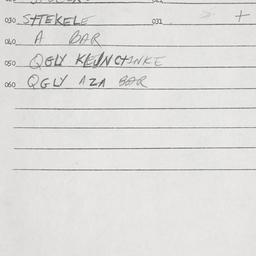 030 SHTEKELE 031 +
040 A BAR
050 QGLY KLYNCHINKE
060 QGLY AZA BAR